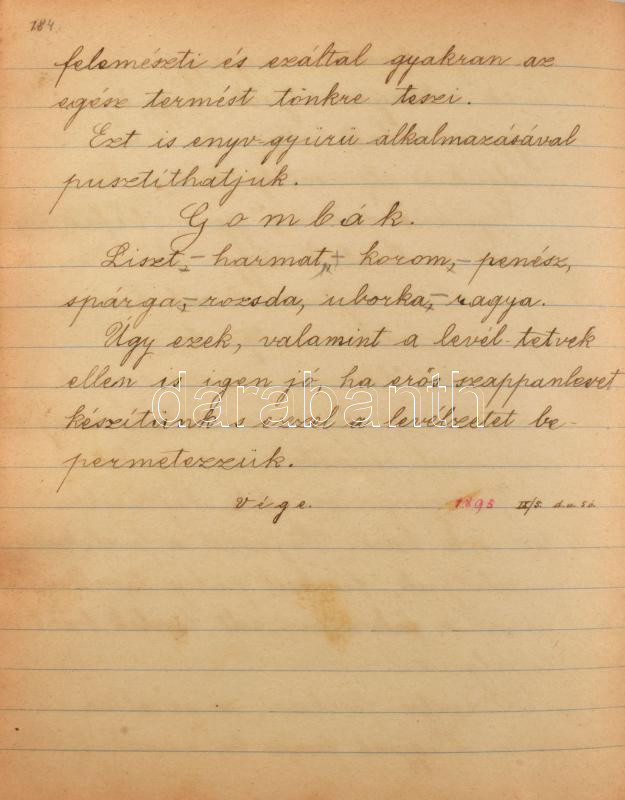 184.
felemészti és ezáltal gyakran az
egész termést tönkre teszi.
Ezt is enyv-gyürü alkalmazásával
pusztíthatjuk.
Gombák.
Liszt,- harmat,- korom,- penész,
spárga,- rozsda, uborka,- ragya.
Úgy ezek, valamint a levél-tetvek
ellen is igen jó, ha erős szappanlevet
készítünk s ezzel a levélzetet be-
permetezzük.
Vége. 1895 IX/5. d.u. 5 ó.
darabanth